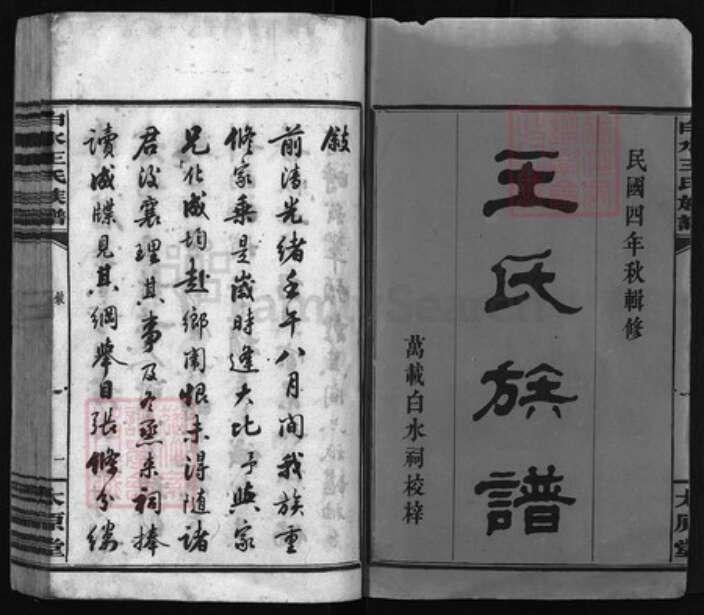 民國四年秋輯修
王氏族譜
萬載白水祠校梓
白水王氏族譜
太原堂
敍
前清光緒壬午八月間我族重
修家乘是歲時逢大比予與家
兄化成均赴鄉闈恨未得隨諸
君後襄理其事及冬烝來祠捧
讀成牒見其綱舉目張條分縷
白水王氏族譜
敍
一
太原堂